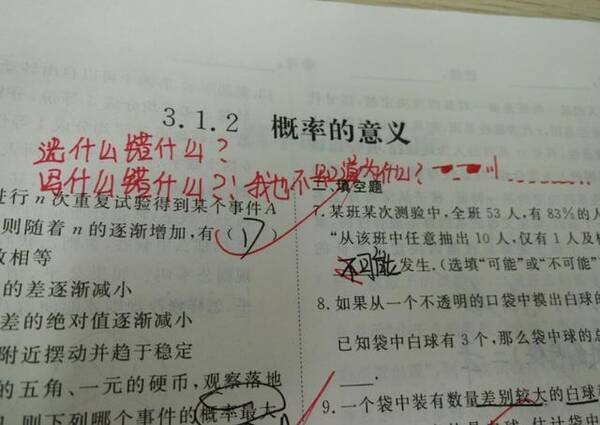 3.1.2 概率的意义
选什么错什么?
因什么错什么?!我也不知道为什么?
进行 n 次重复试验得到某个事件A
则随着 n 的逐渐增加,有( D )
数相等
的差逐渐减小
差的绝对值逐渐减小
附近摆动并趋于稳定
的五角、一元的硬币,观察落地
则下列哪个事件的概率最大
二、填空题
7.某班某次测验中,全班 53 人,有 83%的人
“从该班中任意抽出 10 人,仅有 1 人及格
不可能发生.(选填“可能”或“不可能”
8.如果从一个不透明的口袋中摸出白球的
已知袋中白球有 3 个,那么袋中球的总
9.一个袋中装有数量差别较大的白球